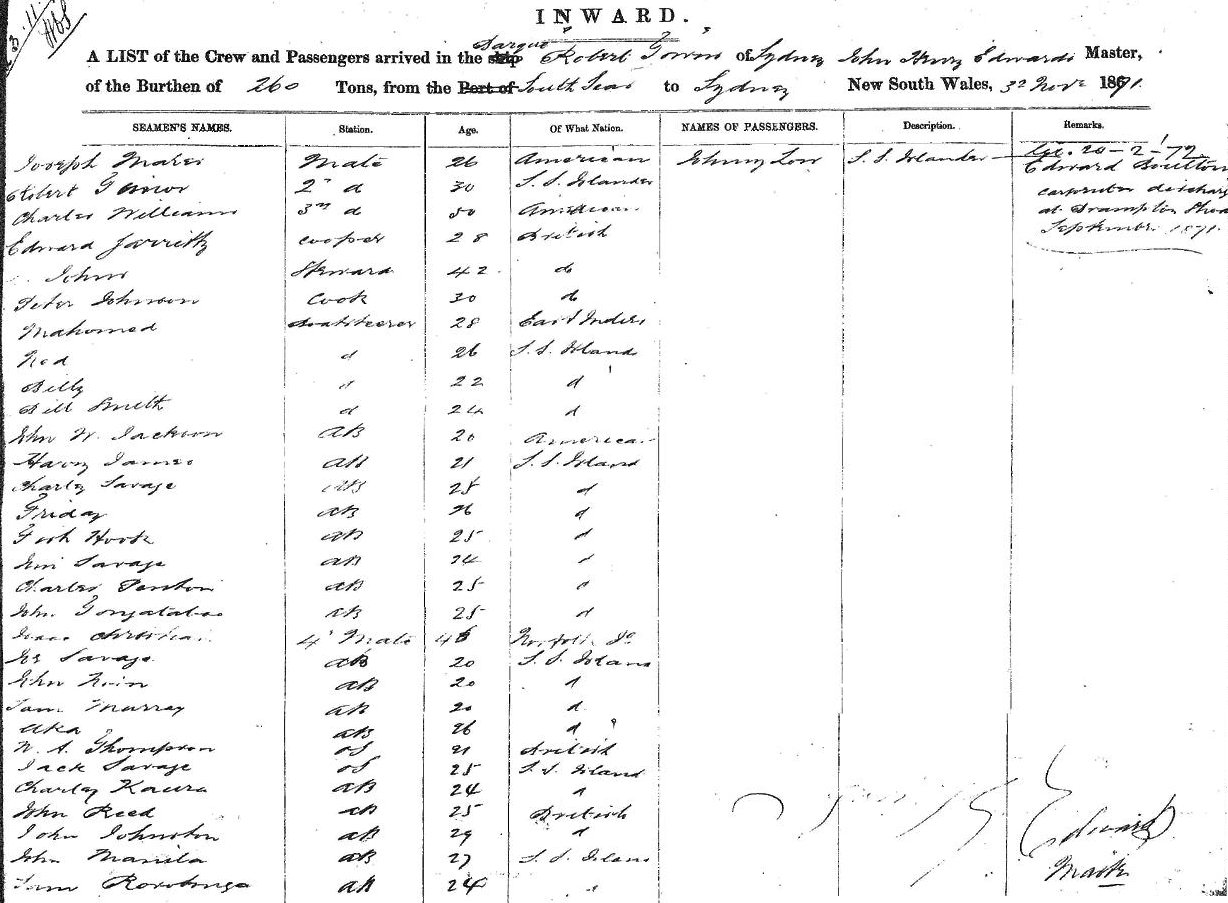 INWARD.
A LIST of the Crew and Passengers arrived in the ship Barque Robert Towns of Sydney John Henry Edwards Master,
of the Burthen of 260 Tons, from the Port of South Seas to Sydney New South Wales, 3d Novr 1871.
SEAMEN'S NAMES. Station. Age. Of What Nation. NAMES OF PASSENGERS. Description. Remarks.
Joseph Mate 26 American Johnny Low S. S. Islander 20-2-72
Robert 2nd d 30 S. S. Islander Edward Boulton
Charles Williams 3rd d 50 American carpenter discharg
at Brampton Shoa
Edward cooper 28 British September 1871.
John Steward 42 do
Peter Johnson Cook 30 do
Mahomed Boatsteerer 28 East Indies
Ned d 26 S. S. Islands
Billy d 22 d
Bill Smith d 24 d
John W. Jackson AB 20 American
Harry James AB 21 S. S. Island
Charley Savage AB 25 d
Friday AB 26 d
Fish Hook AB 25 d
Jim Savage AB 24 d
Charles AB 25 d
John AB 25 d
Isaac Christian 4th Mate 46 Norfolk Id
Savage AB 20 S. S. Island
John AB 20 d
Sam Murray AB 20 d
AB 26 d
W. A. Thompson OS 21 British
Jack Savage OS 25 S. S. Island
Charley AB 24 d
John Reed AB 25 British
John Johnston AB 29 d
John Manila AB 27 S. S. Island
Sam AB 24 "
Edwards
Master